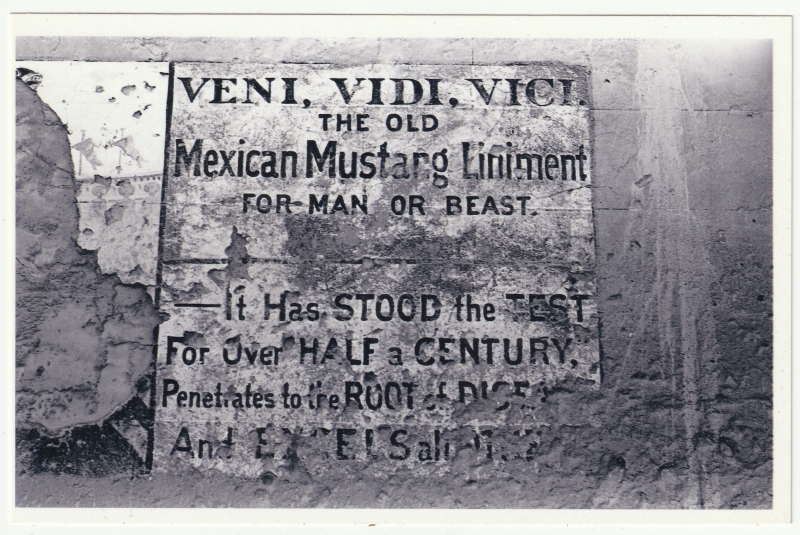 VENI, VIDI, VICI.
THE OLD
Mexican Mustang Liniment
FOR MAN OR BEAST.
—It Has STOOD the TEST
For Over HALF a CENTURY,
Penetrates to the ROOT of
And EXCELS all